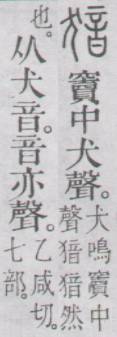 猎竇中犬聲。犬鳴竇中
聲猎猎然
也。从犬音。音亦聲。乙咸切。
七部。